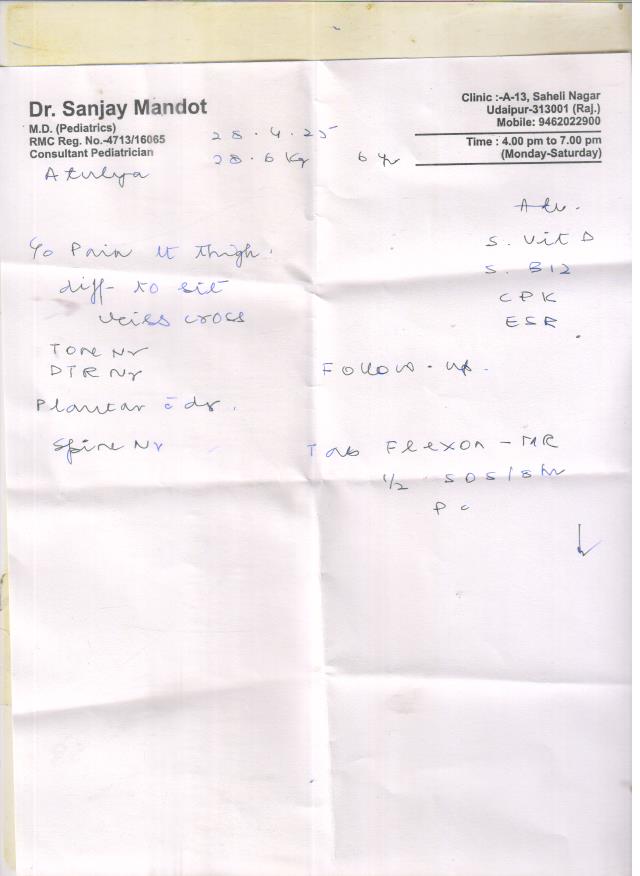 Dr. Sanjay Mandot
M.D. (Pediatrics)
RMC Reg. No.-4713/16065
Consultant Pediatrician
Clinic :-A-13, Saheli Nagar
Udaipur-313001 (Raj.)
Mobile: 9462022900
Time : 4.00 pm to 7.00 pm
(Monday-Saturday)
28.4.25
28.6 Kg 6 yr
Atulya
Adv.
S. Vit D
S. B12
CPK
ESR
Pain thigh.
diff- to sit
cross
Tone Nr
DTR Nr
Plantar
Spine Nr
Follow-up.
Tab Flexon-MR
1/2 SOS/8hr
PC